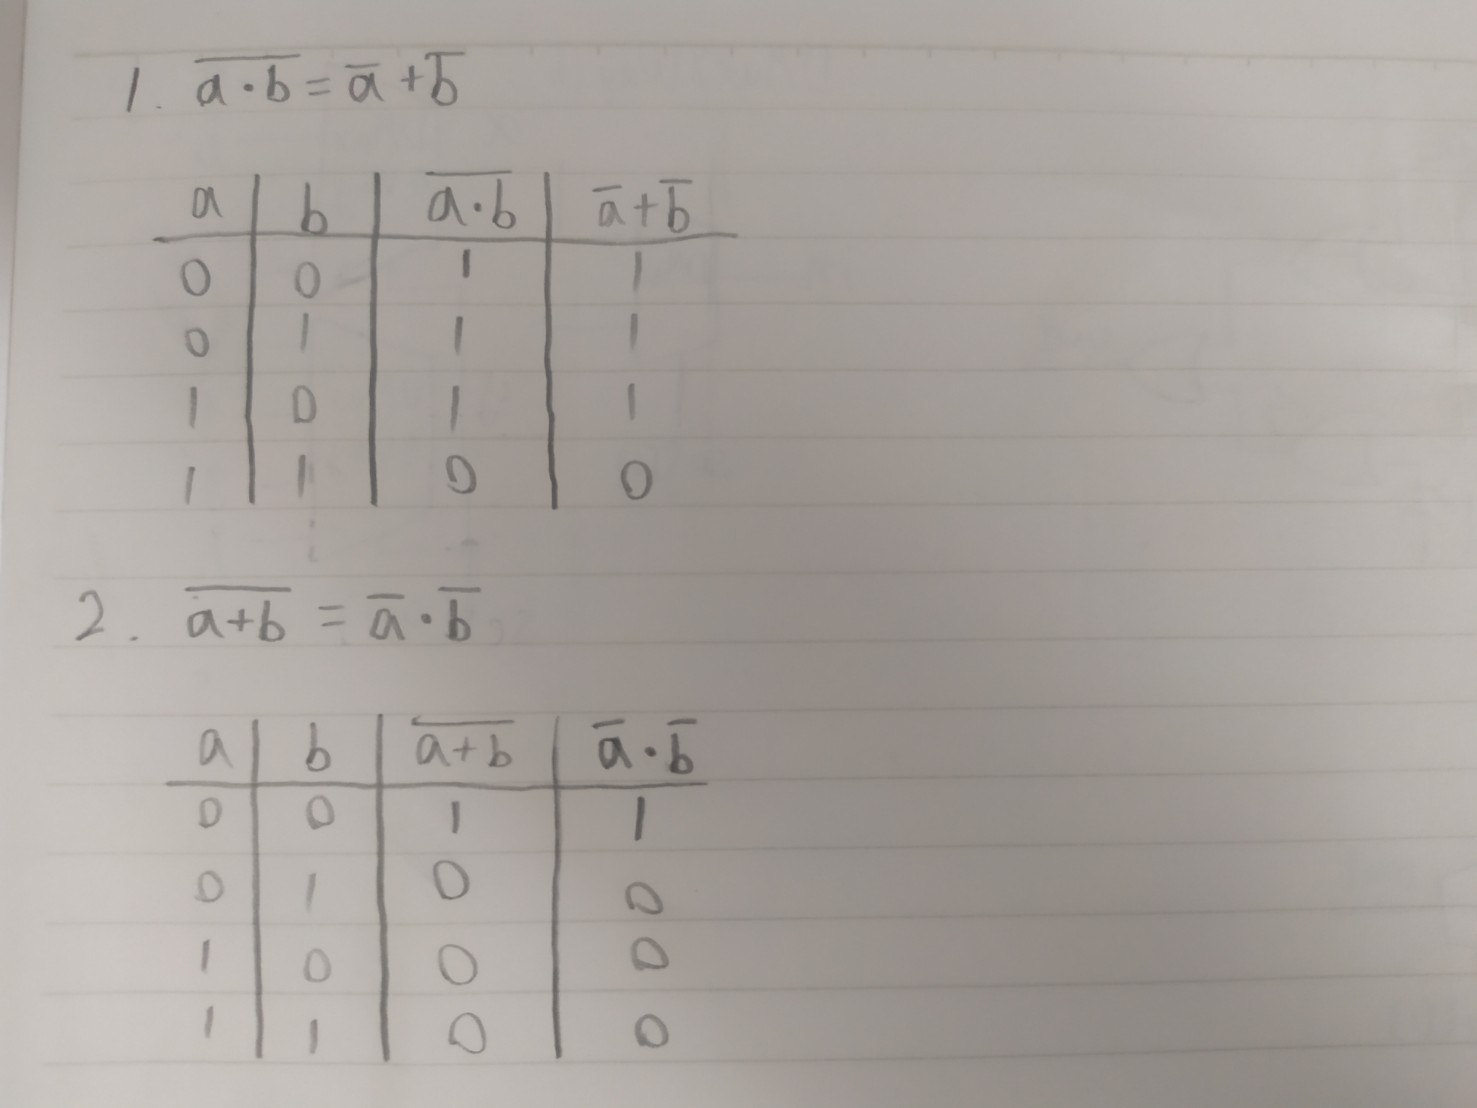 1. \overline{a·b} = \overline{a} + \overline{b}
a | b | \overline{a·b} | \overline{a}+\overline{b}
0 | 0 | 1 | 1
0 | 1 | 1 | 1
1 | 0 | 1 | 1
1 | 1 | 0 | 0
2. \overline{a+b} = \overline{a}·\overline{b}
a | b | \overline{a+b} | \overline{a}·\overline{b}
0 | 0 | 1 | 1
0 | 1 | 0 | 0
1 | 0 | 0 | 0
1 | 1 | 0 | 0